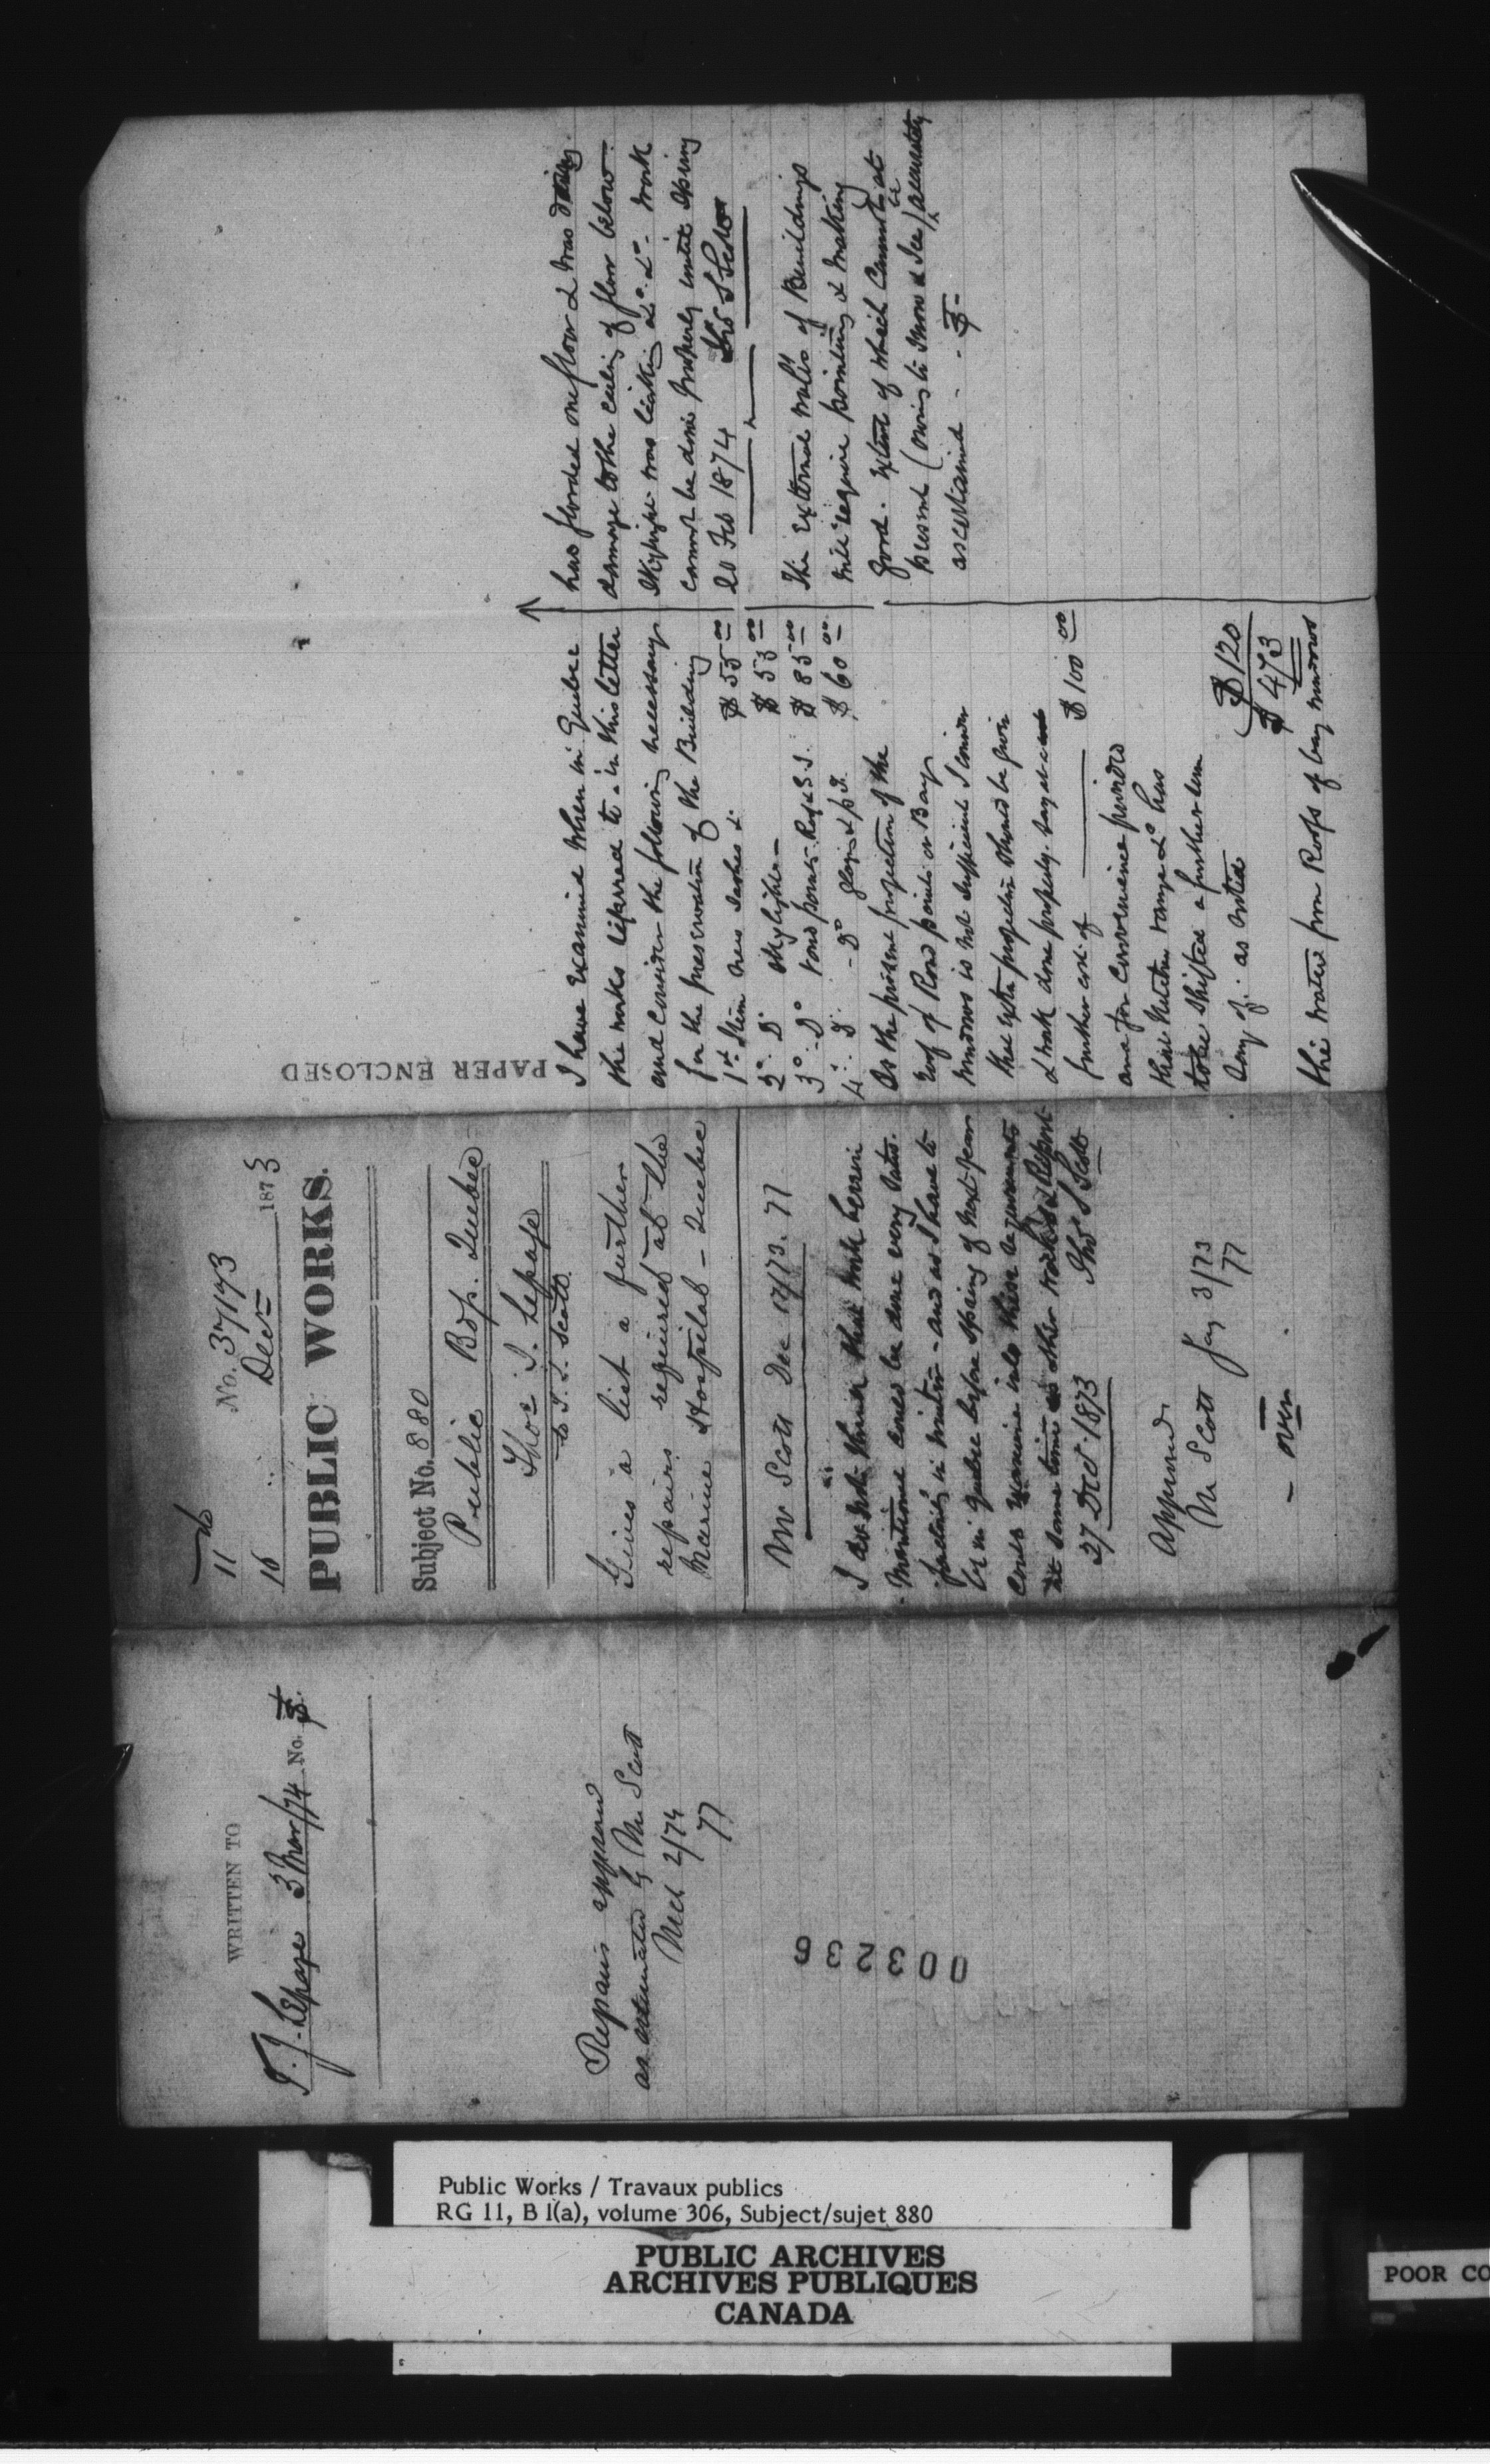 WRITTEN TO
T. J. Lepage 3 Mar/74 No.
Repairs approved
as estimated by Mr Scott
Mch 2/74
77
003236
11
16
No. 37173
Decr 1873
PUBLIC WORKS.
Subject No. 880
Public Bdg. Quebec
Thos. J. Lepage
to T. S. Scott.
Gives a list a further
repairs required at the
Marine Hospital - Quebec
Mr Scott Dec 17/73. 77
I do not think that work herein
mentioned could be done very satis-
factorily in winter - and as I have to
be in Quebec before Spring of next year
could examine into these requirements
at same time as other works & Report
27 Decr. 1873 Thos S Scott
Approved
Mr Scott Jay 3/73
77
- over -
PAPER ENCLOSED
I have examined when in Quebec
the works referred to in this letter
and consider the following necessary
for the preservation of the Building
1st Item new sashes &c. $55 00
2o. Do skylights - $53 00
3o. Do road points Roof S.S. $85 00
4. Do - Do glazing & pg. $60 00.
As the present projection of the
roof of Road points or Bay
windows is not sufficient I consider
that extra projection should be given
& work done properly. Say at a
further cost of $100 00
and for convenience
that kitchen range &c has
to be shifted a further sum
say of. as noted $120
$473
the water from Roofs of bay windows
has flooded one floor & was doing
damage to the ceiling of floor below.
Skylight was leaking &c. &c. Work
cannot be done properly until Spring
20 Feb 1874 Thos S Scott
The External walls of Buildings
will require pointing & making
good. extent of which cannot at
present (owing to snow & Ice) be accurately
ascertained - -
Public Works / Travaux publics
RG 11, B 1(a), volume 306, Subject/sujet 880
PUBLIC ARCHIVES
ARCHIVES PUBLIQUES
CANADA
POOR CO